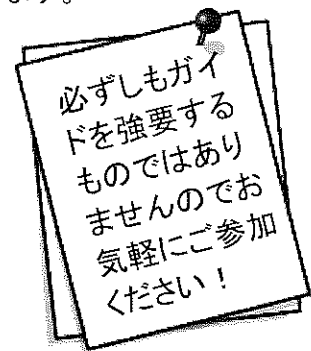 ます。
必ずしもガイ
ドを強要する
ものではあり
ませんのでお
気軽にご参加
ください！